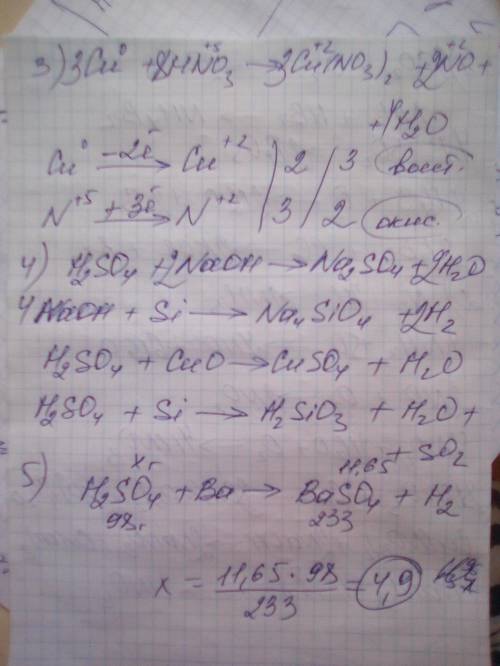 3) 3Cu⁰ + 8HN⁺⁵O₃ → 3Cu⁺²(NO₃)₂ + 2N⁺²O +
+ 4H₂O
Cu⁰ –2ē → Cu⁺² | 2 | 3 восст.
N⁺⁵ +3ē → N⁺² | 3 | 2 окис.
4) H₂SO₄ + 2NaOH → Na₂SO₄ + 2H₂O
4NaOH + Si → Na₄SiO₄ + 2H₂
H₂SO₄ + CuO → CuSO₄ + H₂O
H₂SO₄ + Si → H₂SiO₃ + H₂O +
+ SO₂
xг 11,65
5) H₂SO₄ + Ba → BaSO₄ + H₂
98г 233
x = 11,65 · 98 / 233 = 4,9